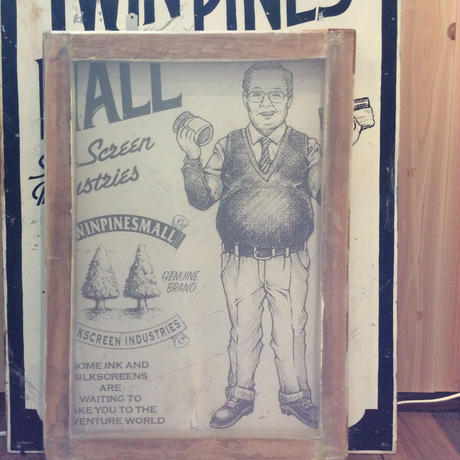 TWINPINES
ALL
Screen
ustries
WINPINESMALL
GENUINE
BRAND
KSCREEN INDUSTRIES
OME INK AND
SILKSCREENS
ARE
WAITING TO
AKE YOU TO THE
VENTURE WORLD